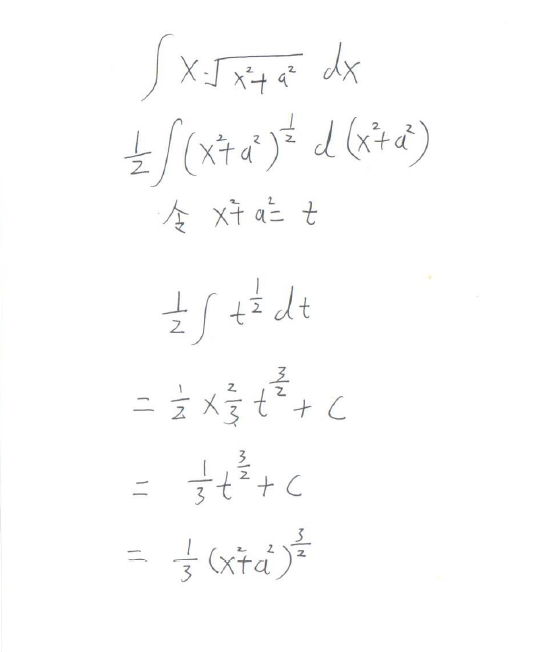 ∫ x·√(x²+a²) dx
1/2 ∫ (x²+a²)^(1/2) d(x²+a²)
令 x²+a² = t
1/2 ∫ t^(1/2) dt
= 1/2 × 2/3 t^(3/2) + C
= 1/3 t^(3/2) + C
= 1/3 (x²+a²)^(3/2)